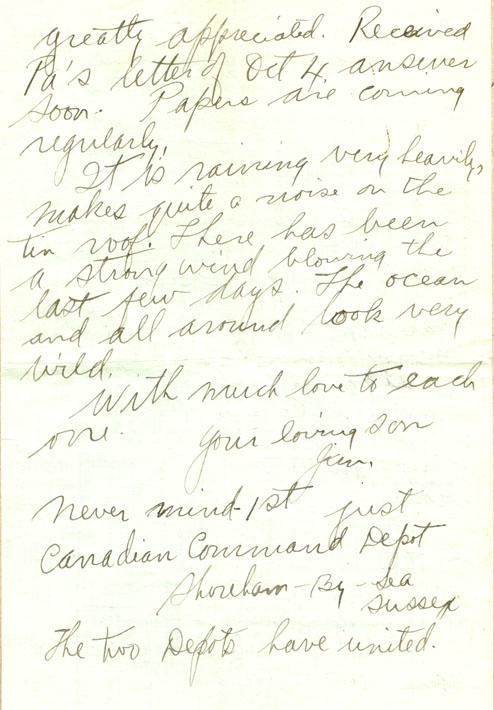 greatly appreciated. Received
Pa's letter of Oct 4, answer
soon. Papers are coming
regularly.
It is raining very heavily,
makes quite a noise on the
tin roof. There has been
a strong wind blowing the
last few days. The ocean
and all around look very
wild.
With much love to each
one. Your loving son
Jim.
Never mind 1st just
Canadian Command Depot
Shoreham-By-Sea
Sussex
The two Depots have united.